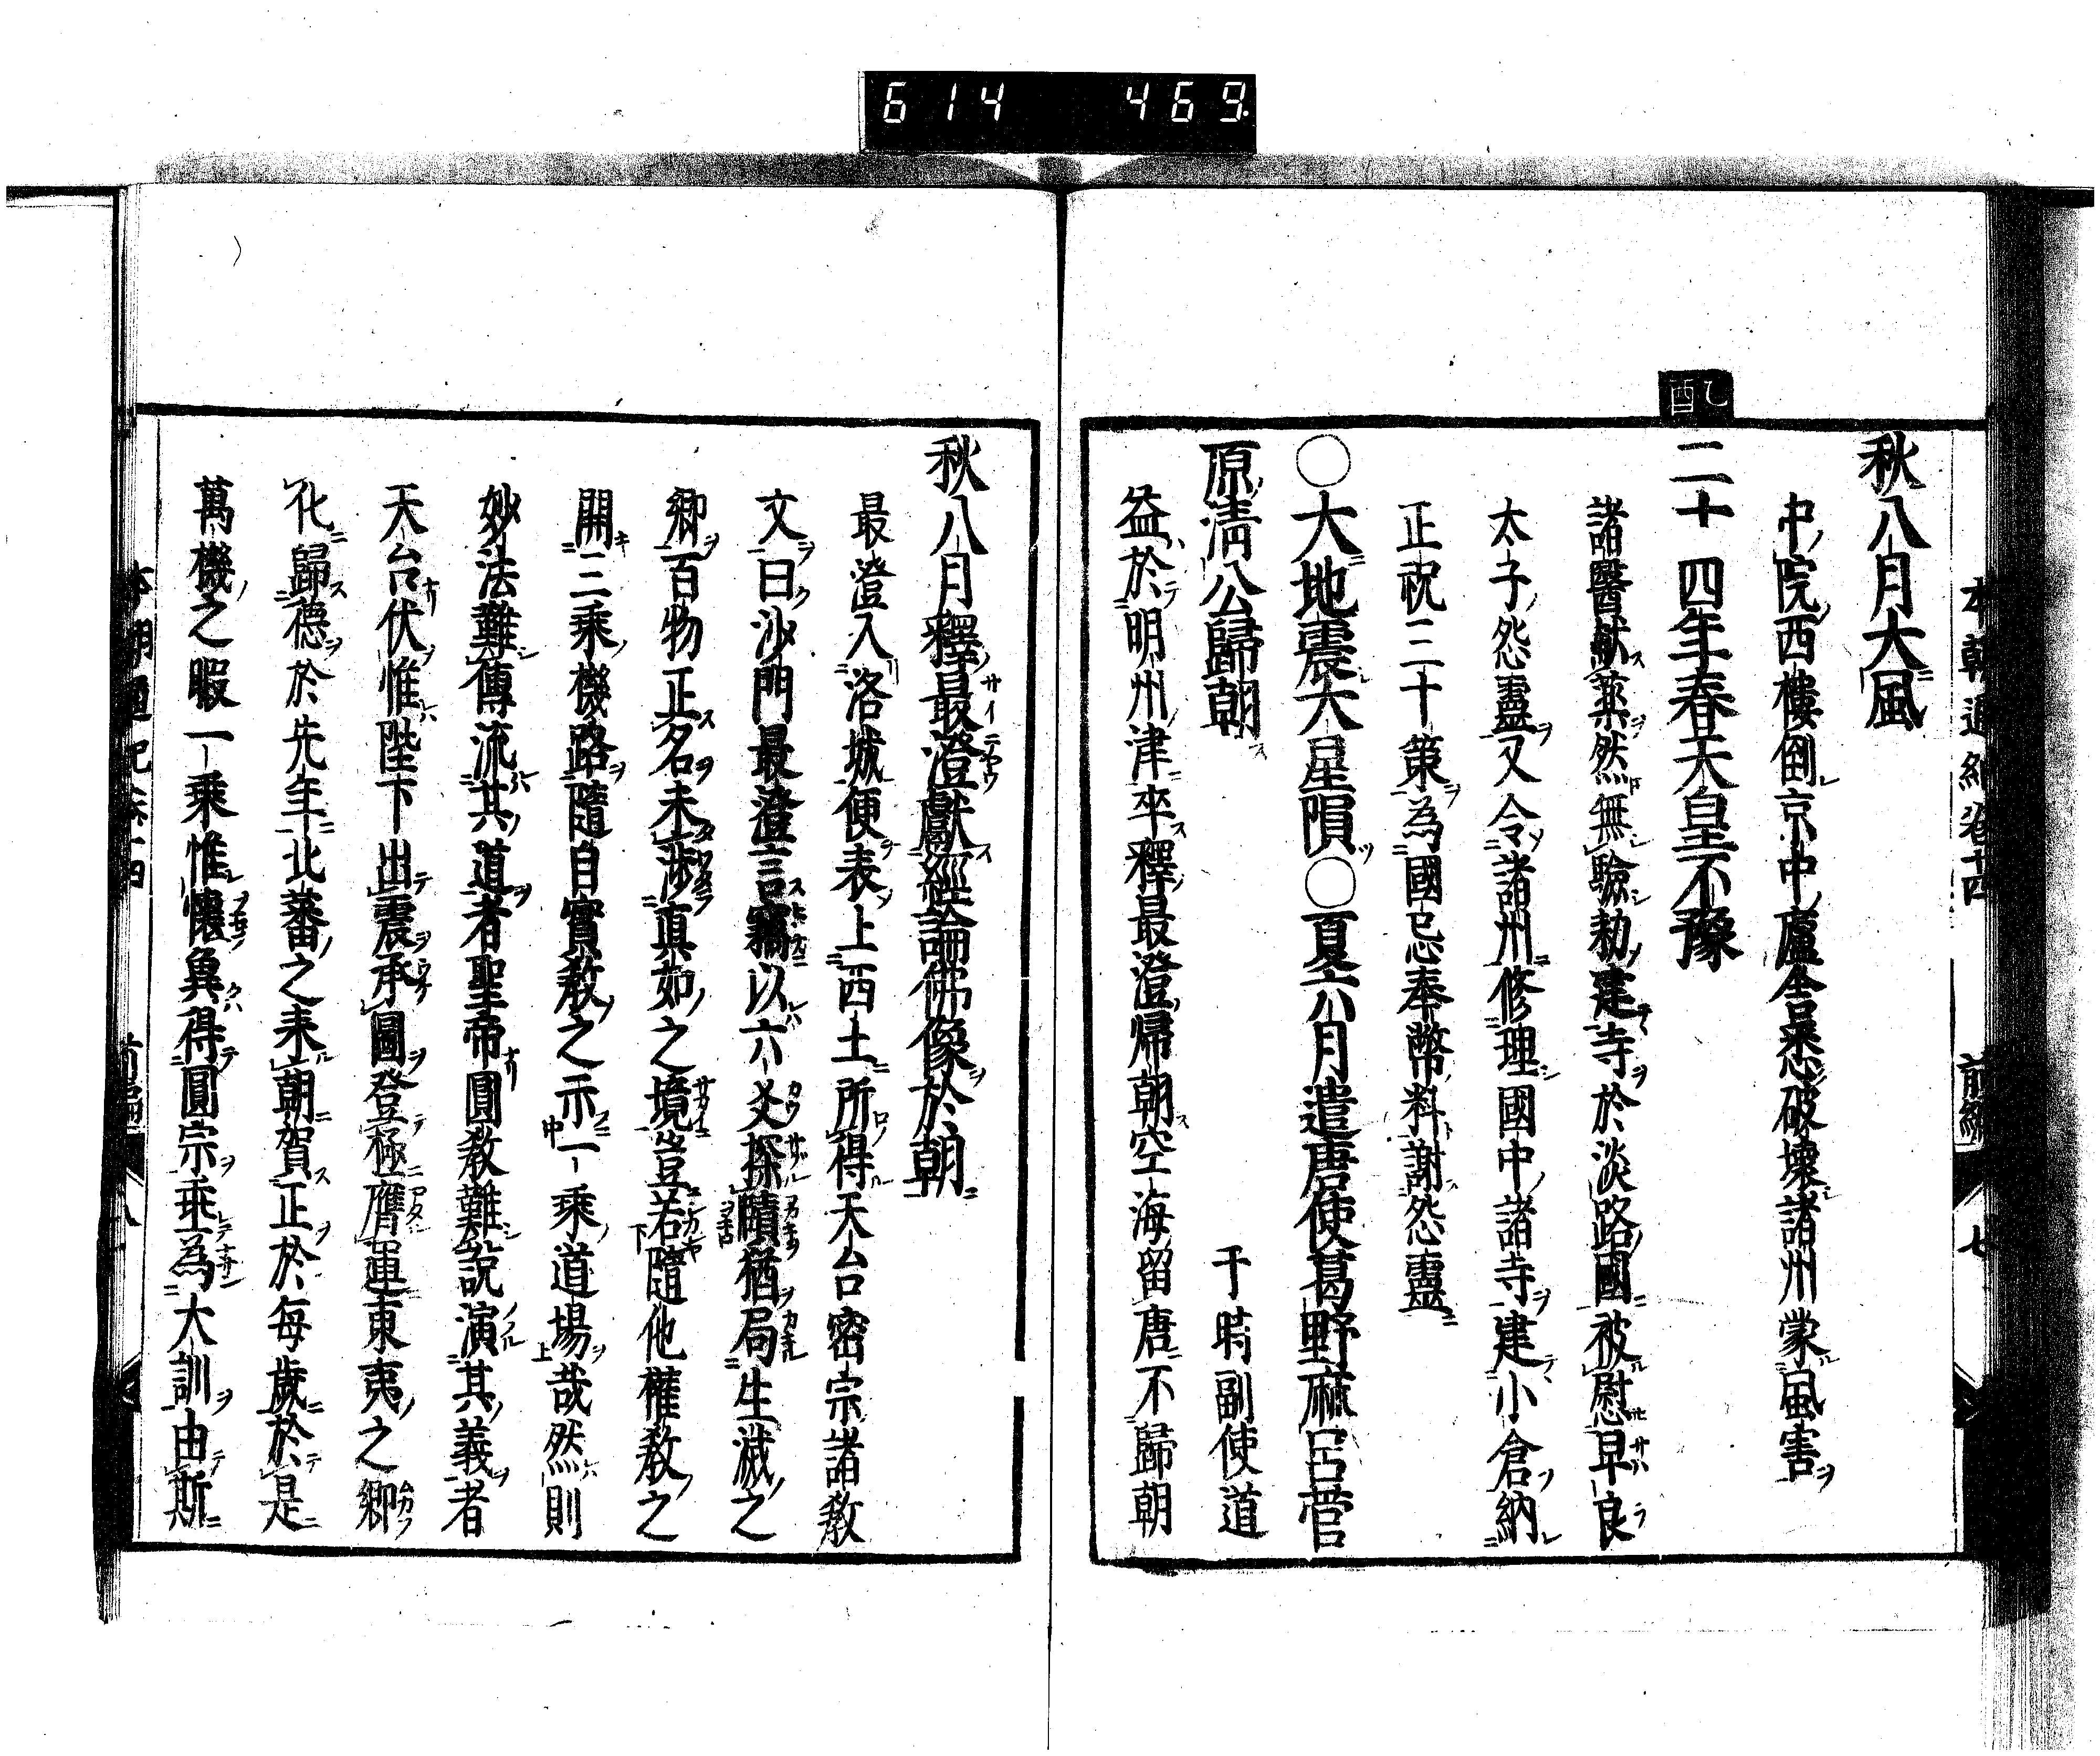 614 469.
本朝通紀卷十四 前編 七
秋八月大風
中院西樓倒京中廬舎悉破壞諸州蒙風害
乙酉
二十四年春天皇不豫
諸醫献藥然無驗勅建寺於淡路國被慰早良
太子怨靈又令諸州修理國中諸寺建小倉納
正祝三十策為國忌奉幣料謝怨靈
○大地震大星隕○夏六月遣唐使葛野麻呂菅
原清公歸朝 于時副使道
益於明州津卒釋最澄帰朝空海留唐不歸朝
秋八月釋最澄獻經論佛像於朝
最澄入洛城便表上西土所得天台密宗諸教
文曰沙門最澄言竊以六爻探賾猶局生滅之
鄉百物正名未涉真如之境豈若隨他權教之
開三乘機路隨自實教之示一乘道場哉然則
妙法難傳流其道者聖帝圓教難說演其義者
天台伏惟陛下出震承圖登極膺運東夷之鄉
化歸德於先年北蕃之来朝賀正於每歲於是
萬機之暇一乘惟懷兾得圓宗垂為大訓由斯
前編 八